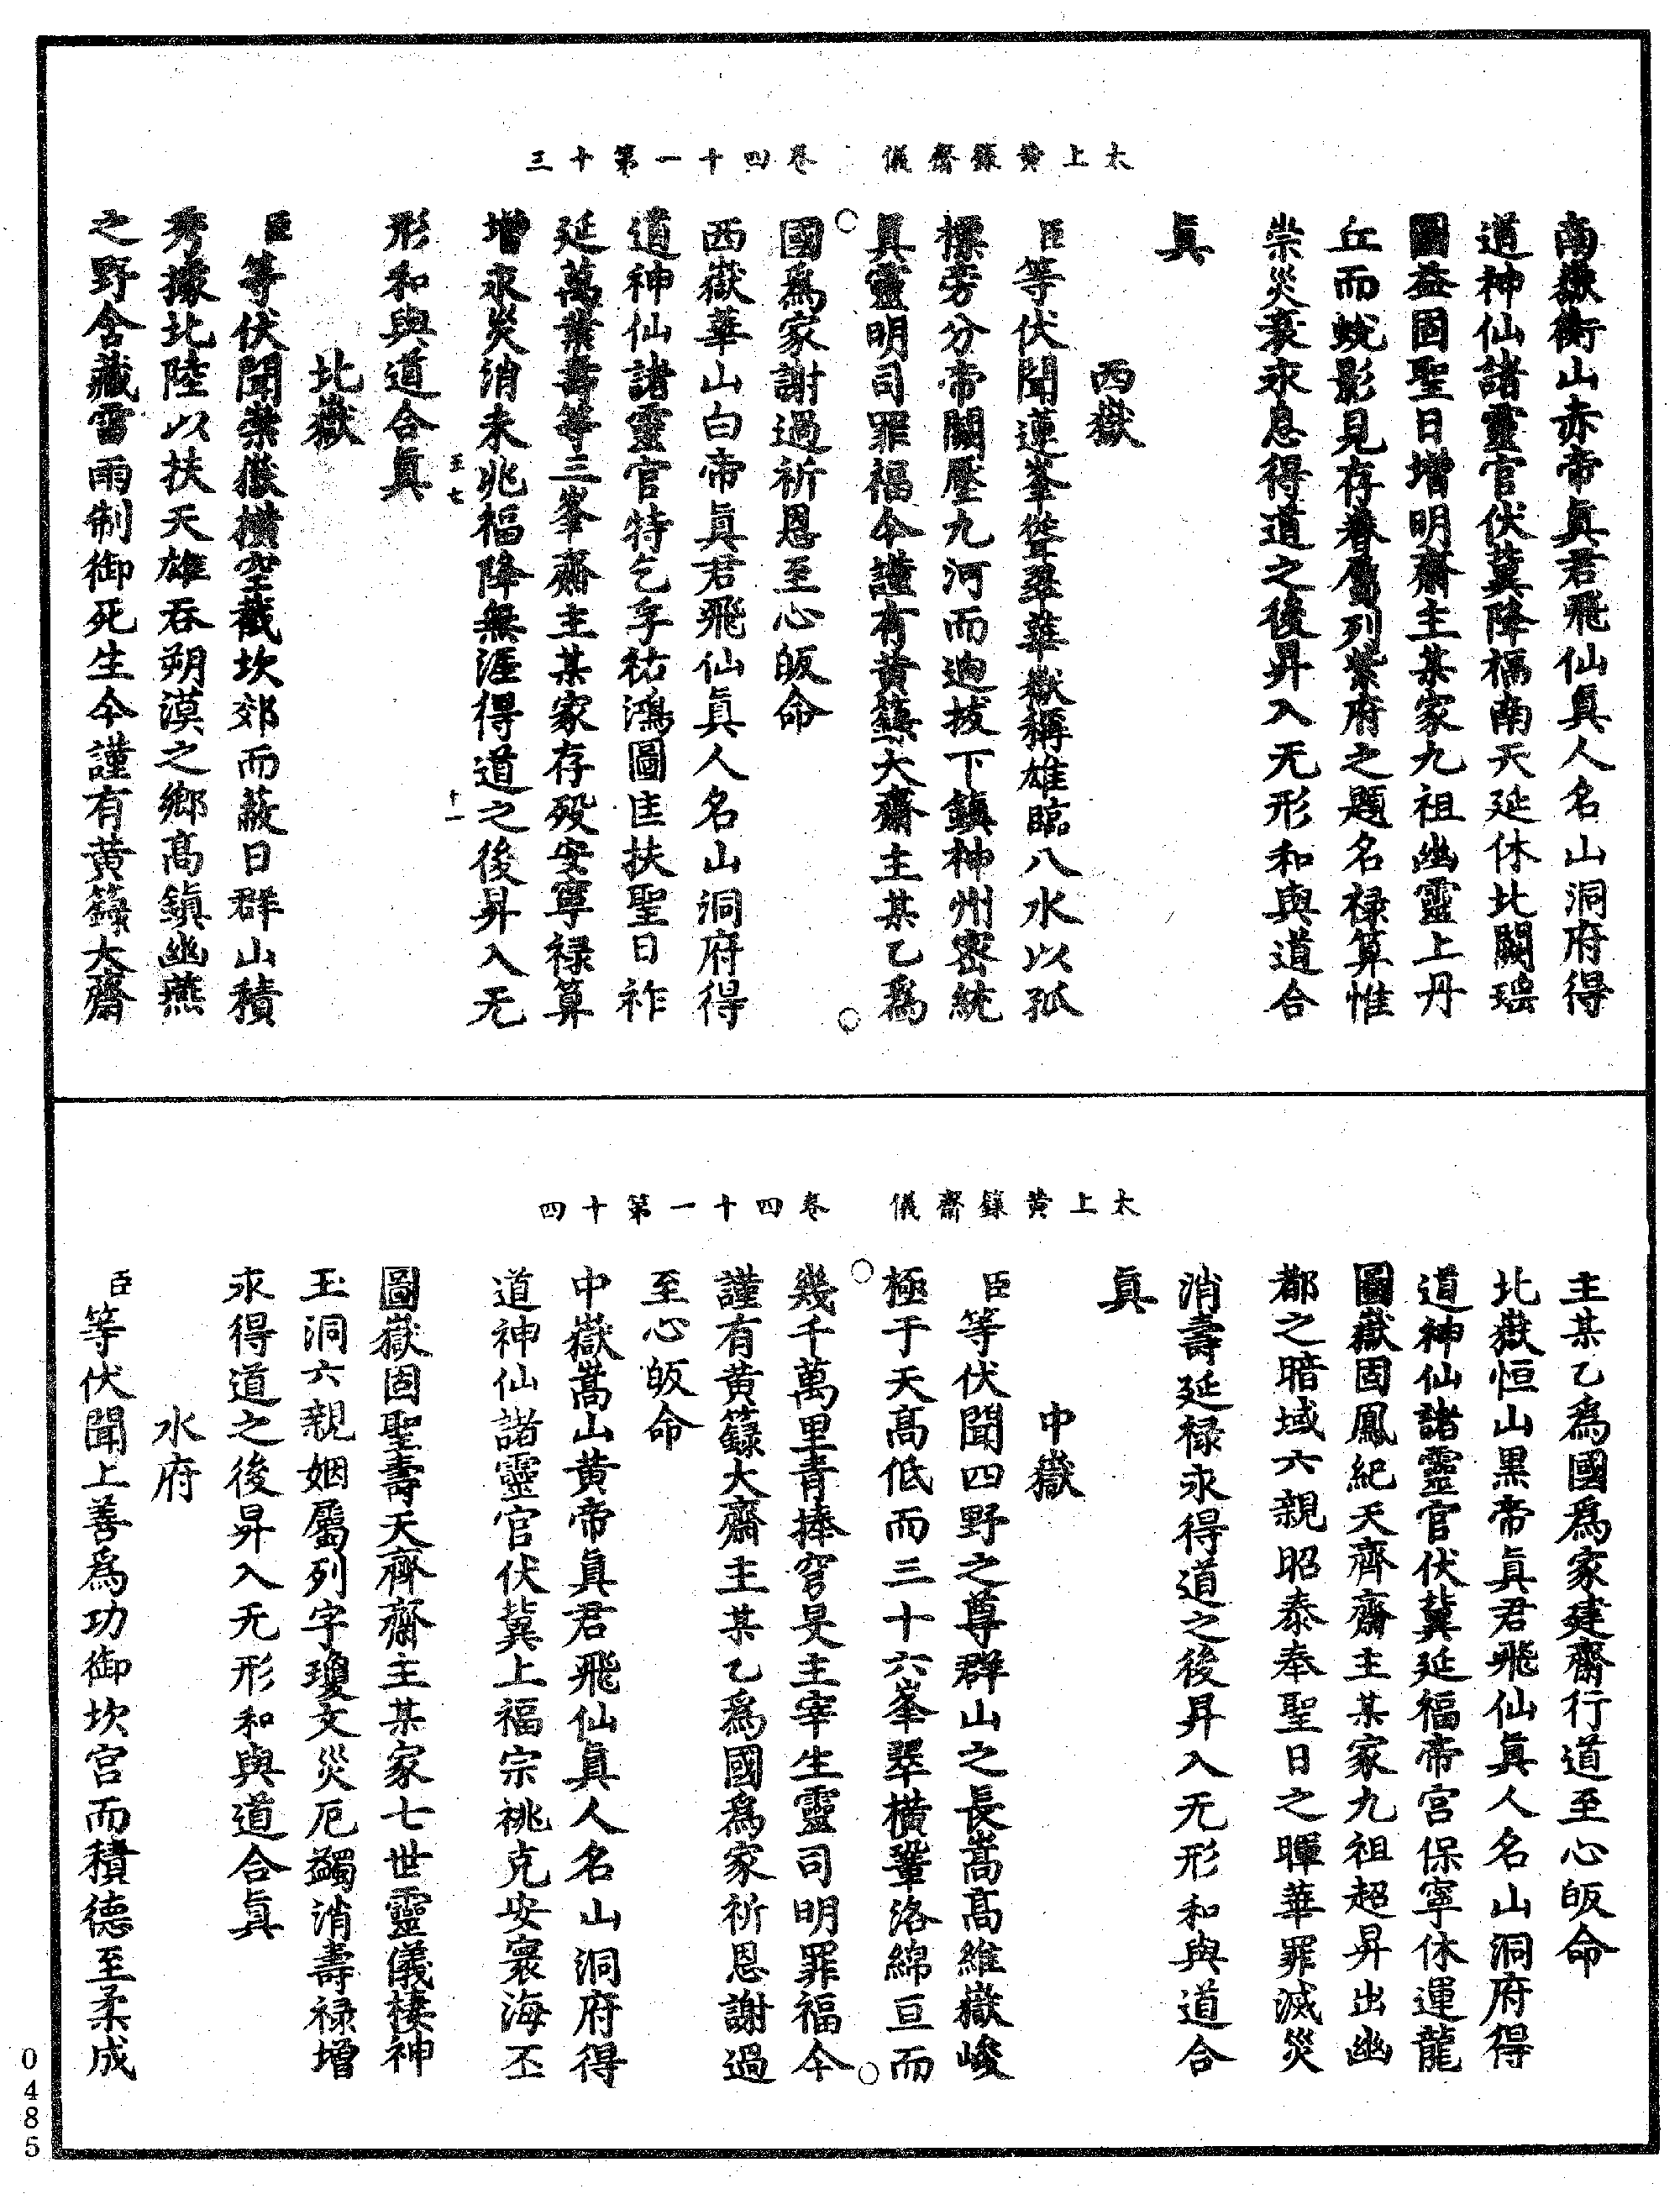 太上黃籙齋儀　卷四十一第十三
南嶽衡山赤帝眞君飛仙眞人名山洞府得
道神仙諸靈官伏冀降福南天延休北闕瑤
圖益固聖日增明齋主某家九祖幽靈上丹
丘而蛻影見存眷屬列紫府之題名祿算惟
崇災衰永息得道之後昇入无形和與道合
眞
西嶽
臣等伏聞蓮峯聳翠華嶽稱雄臨八水以孤
摽旁分帝闕壓九河而迥拔下鎮神州密統
眞靈明司罪福今謹有黃籙大齋主某乙爲
國爲家謝過祈恩至心皈命
西嶽華山白帝眞君飛仙眞人名山洞府得
道神仙諸靈官特乞孚祐鴻圖匡扶聖日祚
延萬葉壽等三峯齋主某家存歿安寧祿算
增永災消未兆福降無涯得道之後昇入无
形和與道合眞
至七　十一
北嶽
臣等伏聞崇嶽橫空截坎郊而蔽日群山積
秀據北陸以扶天雄吞朔漠之鄉高鎮幽燕
之野含藏雷雨制御死生今謹有黃籙大齋
太上黃籙齋儀　卷四十一第十四
主某乙爲國爲家建齋行道至心皈命
北嶽恒山黑帝眞君飛仙眞人名山洞府得
道神仙諸靈官伏冀延福帝宮保寧休運龍
圖嶽固鳳紀天齊齋主某家九祖超昇出幽
都之暗域六親昭泰奉聖日之暉華罪滅災
消壽延祿永得道之後昇入无形和與道合
眞
中嶽
臣等伏聞四野之尊群山之長嵩高維嶽峻
極于天高低而三十六峯翠橫鞏洛綿亘而
幾千萬里青捧穹旻主宰生靈司明罪福今
謹有黃籙大齋主某乙爲國爲家祈恩謝過
至心皈命
中嶽嵩山黃帝眞君飛仙眞人名山洞府得
道神仙諸靈官伏冀上福宗祧克安寰海丕
圖嶽固聖壽天齊齋主某家七世靈儀棲神
玉洞六親姻屬列字瓊文災厄蠲消壽祿增
永得道之後昇入无形和與道合眞
水府
臣等伏聞上善爲功御坎宮而積德至柔成
0485